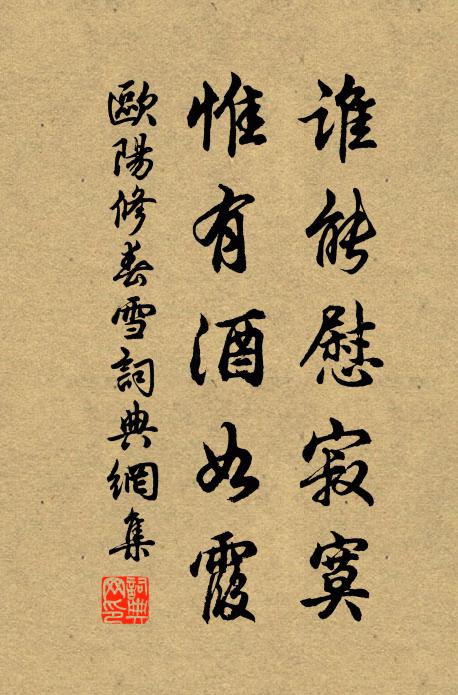 谁能慰寂寞
惟有酒如霞
歐陽修春雪詞典網集
詞典网印